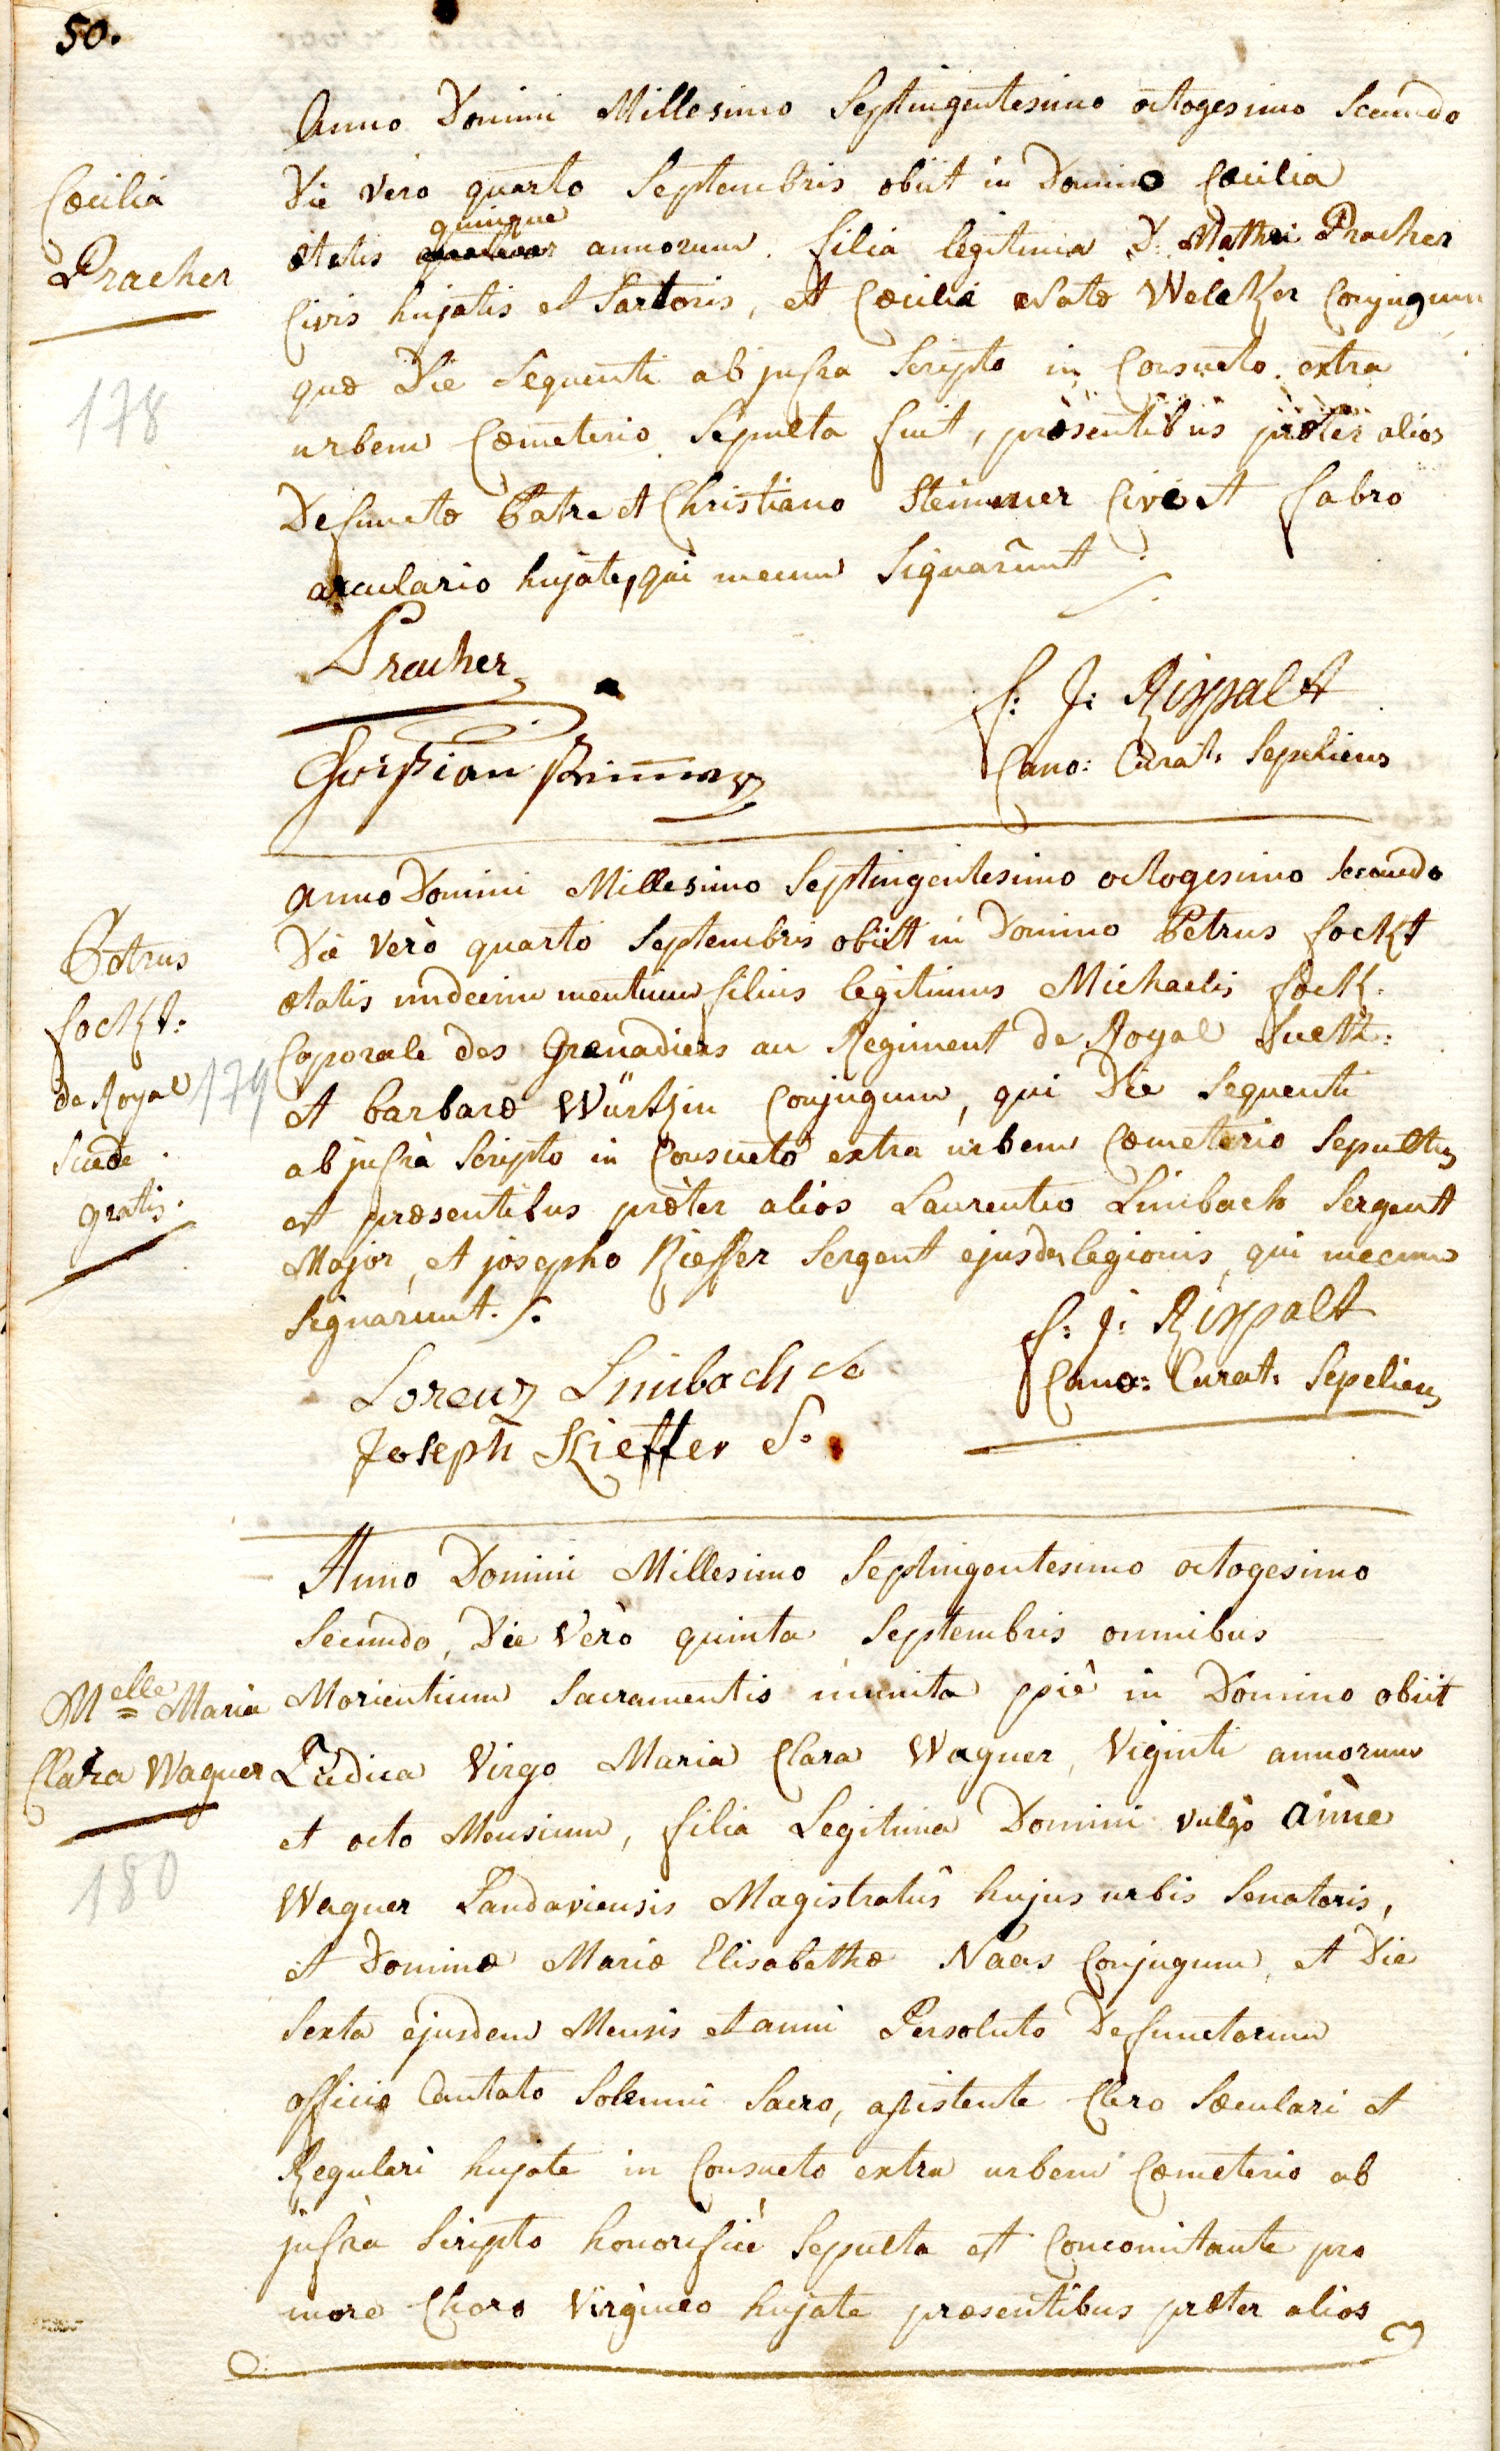 50.
Anno Domini Millesimo Septingentesimo octogesimo Secundo
Die vero quarto Septembris obiit in Domino Cæcilia
Cæcilia
Pracher
quinque
ætatis annorum. filia legitima D. Mathæi Pracher
Civis hujatis et Sartoris, et Cæciliæ natæ Welcker Conjugum
quæ Die Sequenti ab jnfra Scripto in Consueto extra
178
urbem Cœmeterio Sepulta fuit, præsentibus præter alios
Defunctæ Patre et Christiano Steimmer Cive et fabro
arculario hujate, qui mecum Signarunt
Pracher
f: J: Rippalt
Cano: Curat: Sepeliens
Christian
Anno Domini Millesimo Septingentesimo octogesimo Secundo
Die verò quarto Septembris obiit in Domino Petrus fockt
Petrus
fockt:
de Royal
Suede
gratis.
179
ætatis undecim mentium filius legitimus Michaelis fock.
Caporale des Grenadiers au Regiment de Royal Suett:
et Barbaræ Würtzin Conjugum, qui Die Sequenti
ab jnfrà Scripto in Consueto extra urbem Cœmeterio Sepultus
est præsentibus præter alios Laurentio Limbach Sergent
Major, et josepho Kieffer Sergent ejusdem legionis, qui mecum
Signarunt. /.
f: j: Rippalt
Cano: Curat: Sepeliens
Lorenz Limbach
Joseph Kieffer S.
Anno Domini Millesimo Septingentesimo octogesimo
Secundo, Die Verò quinta Septembris omnibus
Melle Maria
Clara Wagner
180
Morientium Sacramentis munita piè in Domino obiit
Pudica Virgo Maria Clara Wagner, Viginti annorum
et octo Mensium, filia Legitima Domini vulgò aimè
Wagner Landaviensis Magistratûs hujus urbis Senatoris,
et Dominæ Mariæ Elisabethæ Naas Conjugum, et Die
Sexta ejusdem Mensis et anni Persoluto Defunctorum
officio Cantato Solemni Sacro, assistente Clero Sæculari et
Regulari hujate in Consueto extra urbem Cœmeterio ab
jnfrà Scripto honorificè Sepulta est Concomitante pro
more Choro Virgineo hujate præsentibus præter alios